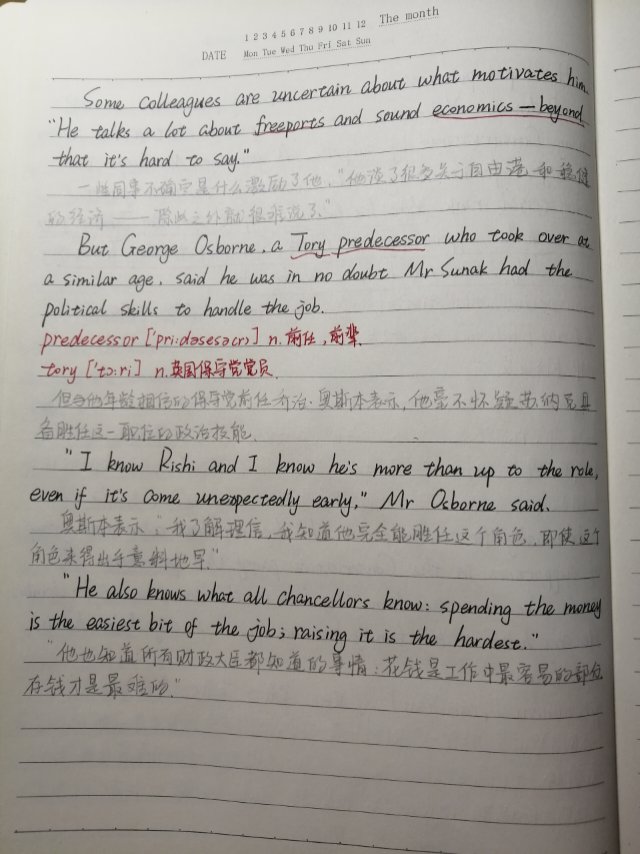 1 2 3 4 5 6 7 8 9 10 11 12 The month
DATE Mon Tue Wed Thu Fri Sat Sun
Some colleagues are uncertain about what motivates him.
"He talks a lot about freeports and sound economics — beyond
that it's hard to say."
一些同事不确定是什么激励了他,"他谈了很多关于自由港和稳健
的经济 —— 除此之外就很难说了."
But George Osborne, a Tory predecessor who took over at
a similar age, said he was in no doubt Mr Sunak had the
political skills to handle the job.
predecessor ['pri:dəsesə(r)] n. 前任, 前辈.
tory ['tɔ:ri] n. 英国保守党党员.
但与他年龄相仿的保守党前任乔治·奥斯本表示, 他毫不怀疑苏纳克具
备胜任这一职位的政治技能.
"I know Rishi and I know he's more than up to the role,
even if it's come unexpectedly early," Mr Osborne said.
奥斯本表示: "我了解理信, 我知道他完全能胜任这个角色, 即使这个
角色来得出乎意料地早."
"He also knows what all chancellors know: spending the money
is the easiest bit of the job; raising it is the hardest."
"他也知道所有财政大臣都知道的事情: 花钱是工作中最容易的部分,
存钱才是最难的."